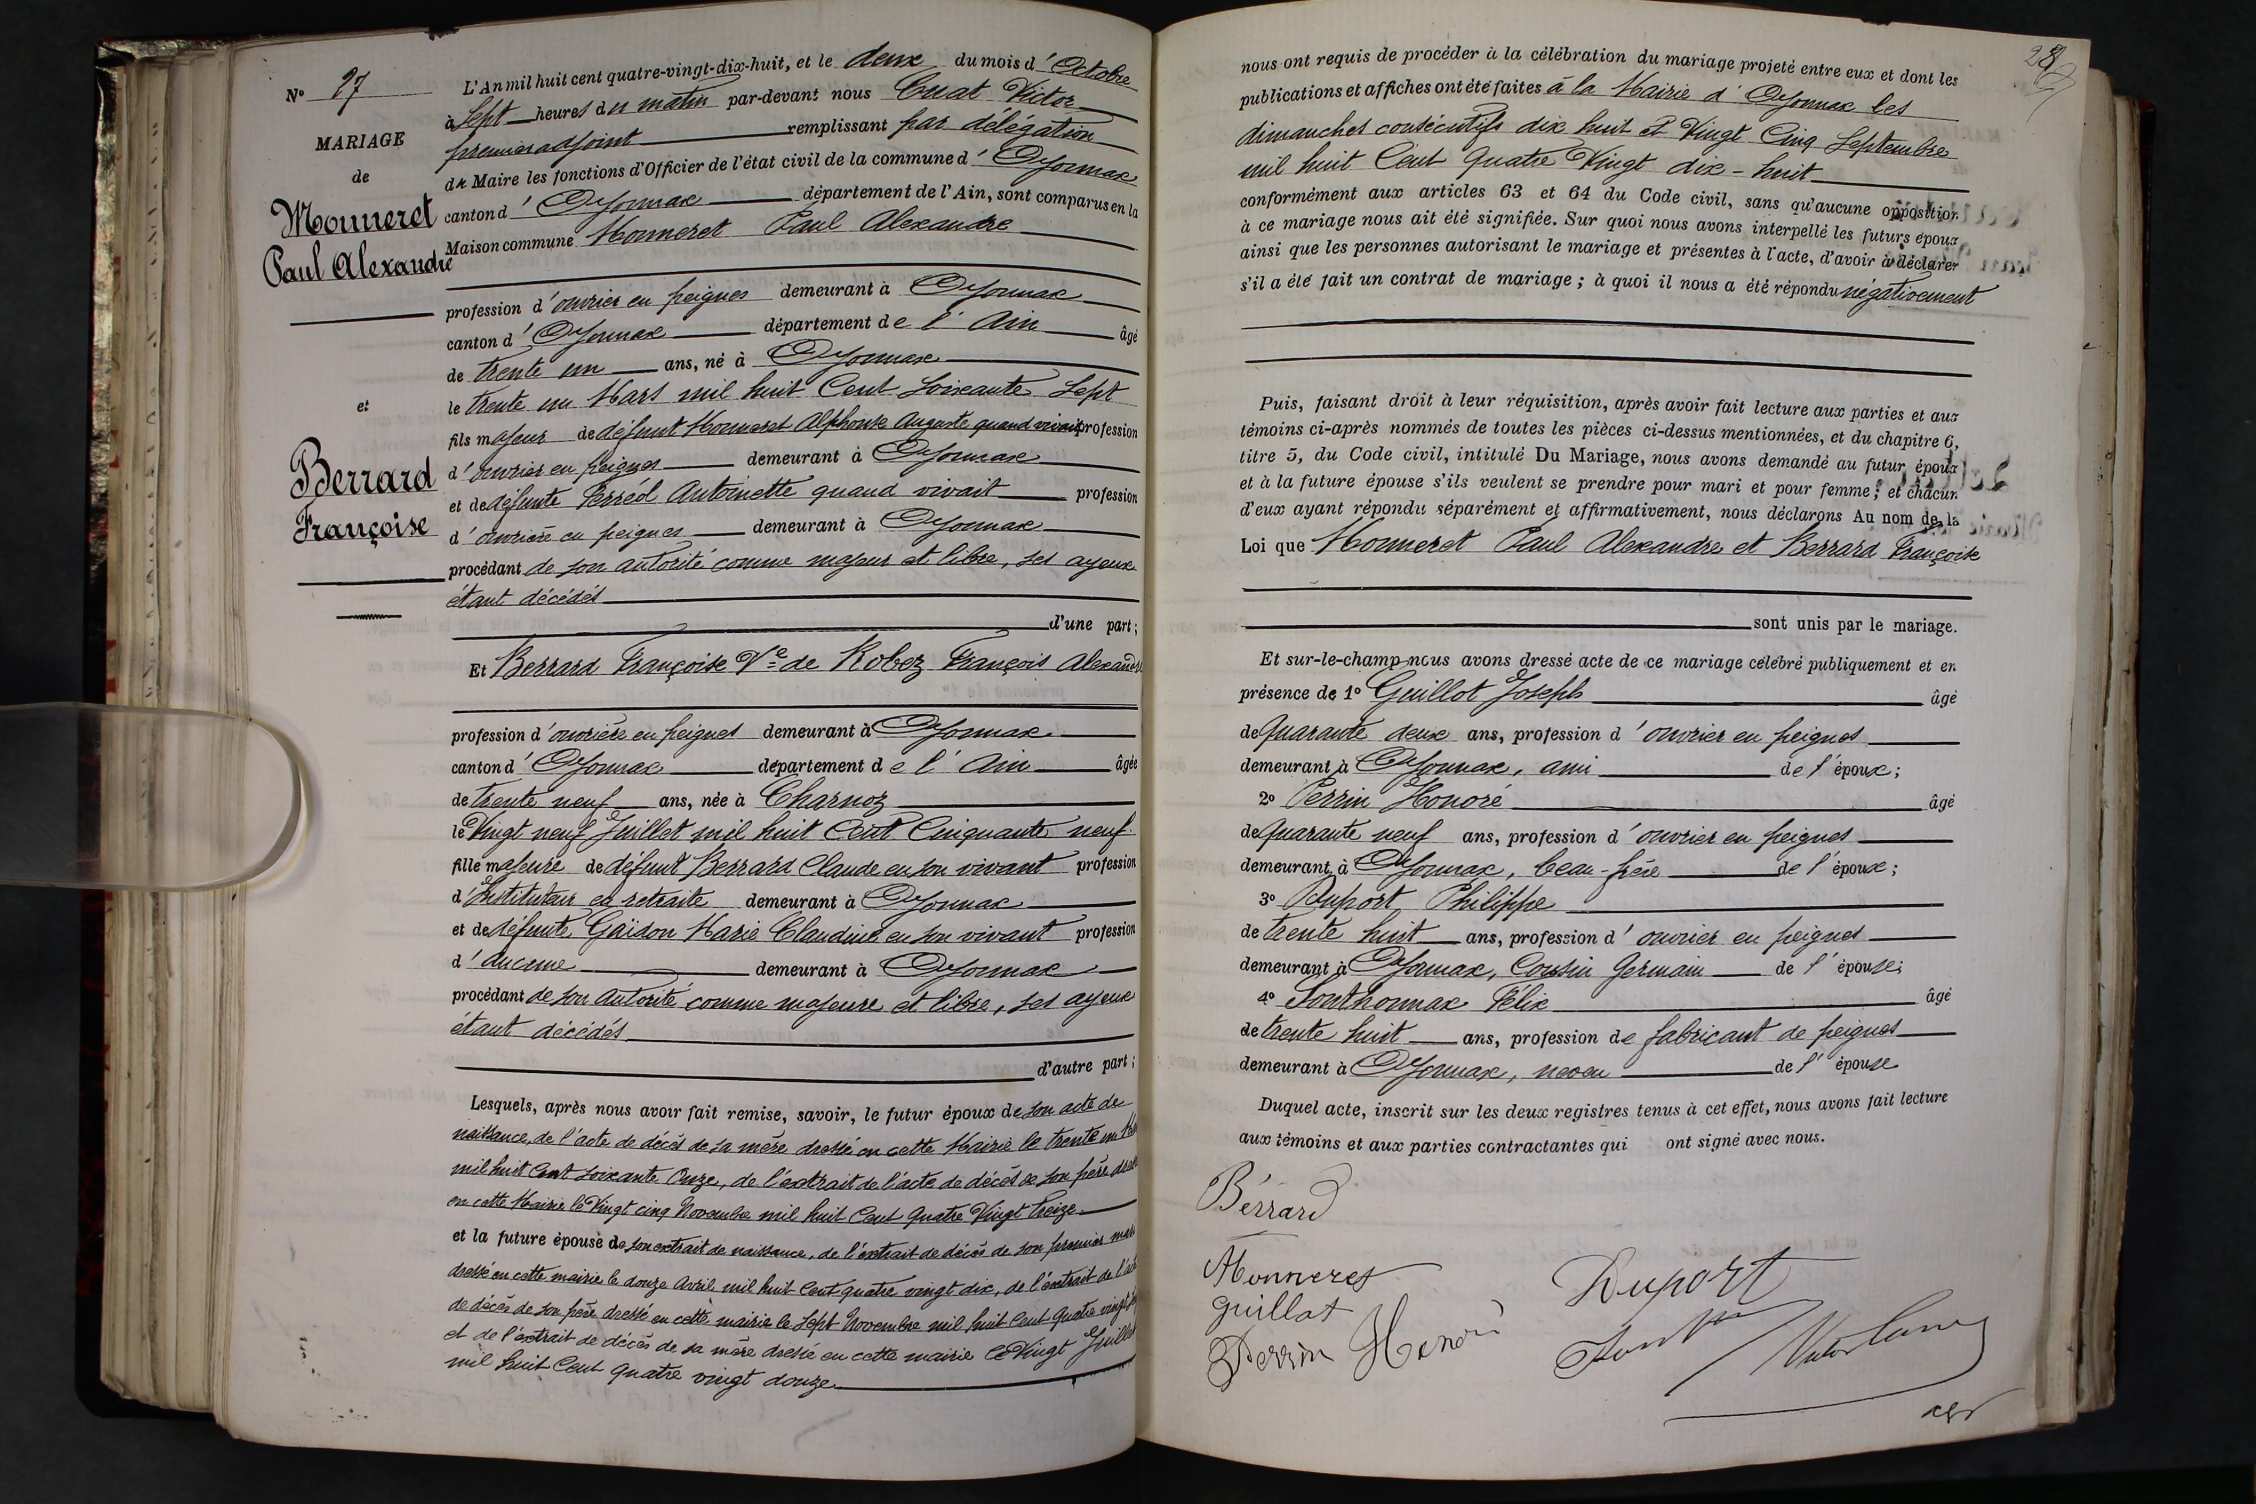 N° 97
MARIAGE
de
Monneret
Paul Alexandre
et
Berrard
Françoise
L'An mil huit cent quatre-vingt-dix-huit, et le deux du mois d'Octobre
à Sept heures du matin par-devant nous Cuat Victor
premier adjoint remplissant par délégation
du Maire les fonctions d'Officier de l'état civil de la commune d'Oyonnax
canton d'Oyonnax département de l'Ain, sont comparus en la
Maison commune Monneret Paul Alexandre
profession d'ouvrier en peignes demeurant à Oyonnax
canton d'Oyonnax département de l'Ain âgé
de trente un ans, né à Oyonnax
le trente un Mars mil huit Cent soixante Sept
fils majeur de défunt Monneret Alphonse Auguste quand vivait profession
d'ouvrier en peignes demeurant à Oyonnax
et de défunte Perréol Antoinette quand vivait profession
d'ouvrière en peignes demeurant à Oyonnax
procédant de son autorité comme majeur et libre, ses ayeux
étant décédés
d'une part;
Et Berrard Françoise Vve de Robez François Alexandre
profession d'ouvrière en peignes demeurant à Oyonnax
canton d'Oyonnax département de l'Ain âgée
de trente neuf ans, née à Charnoz
le Vingt neuf Juillet mil huit Cent Cinquante neuf
fille majeure de défunt Berrard Claude en son vivant profession
d'Instituteur en retraite demeurant à Oyonnax
et de défunte Gaidon Marie Claudine en son vivant profession
d'aucune demeurant à Oyonnax
procédant de son autorité comme majeure et libre, ses ayeux
étant décédés
d'autre part;
Lesquels, après nous avoir fait remise, savoir, le futur époux de son acte de
naissance, de l'acte de décès de sa mère dressé en cette Mairie le trente un
mil huit Cent soixante Onze, de l'extrait de l'acte de décès de son père dressé
en cette Mairie le Vingt cinq Novembre mil huit Cent Quatre Vingt Treize
et la future épouse de son extrait de naissance, de l'extrait de décès de son premier mari
dressé en cette mairie le douze Avril mil huit Cent quatre vingt dix, de l'extrait de l'acte
de décès de son père dressé en cette mairie le Sept Novembre mil huit Cent Quatre vingt
et de l'extrait de décès de sa mère dressé en cette mairie le Vingt Juillet
mil huit Cent quatre vingt douze
nous ont requis de procéder à la célébration du mariage projeté entre eux et dont les
publications et affiches ont été faites à la Mairie d'Oyonnax les
dimanches consécutifs dix huit et Vingt Cinq Septembre
mil huit Cent Quatre Vingt dix-huit
conformément aux articles 63 et 64 du Code civil, sans qu'aucune opposition
à ce mariage nous ait été signifiée. Sur quoi nous avons interpellé les futurs époux
ainsi que les personnes autorisant le mariage et présentes à l'acte, d'avoir à déclarer
s'il a été fait un contrat de mariage; à quoi il nous a été répondu négativement
Puis, faisant droit à leur réquisition, après avoir fait lecture aux parties et aux
témoins ci-après nommés de toutes les pièces ci-dessus mentionnées, et du chapitre 6,
titre 5, du Code civil, intitulé Du Mariage, nous avons demandé au futur époux
et à la future épouse s'ils veulent se prendre pour mari et pour femme; et chacun
d'eux ayant répondu séparément et affirmativement, nous déclarons Au nom de la
Loi que Monneret Paul Alexandre et Berrard Françoise
sont unis par le mariage.
Et sur-le-champ nous avons dressé acte de ce mariage célébré publiquement et en
présence de 1° Guillot Joseph âgé
de Quarante deux ans, profession d'ouvrier en peignes
demeurant à Oyonnax, ami de l'époux;
2° Perrin Honoré âgé
de quarante neuf ans, profession d'ouvrier en peignes
demeurant à Oyonnax, beau-frère de l'époux;
3° Duport Philippe
de trente huit ans, profession d'ouvrier en peignes
demeurant à Oyonnax, Cousin Germain de l'épouse;
4° Sonthonnax Félix âgé
de trente huit ans, profession de fabricant de peignes
demeurant à Oyonnax, neveu de l'épouse
Duquel acte, inscrit sur les deux registres tenus à cet effet, nous avons fait lecture
aux témoins et aux parties contractantes qui ont signé avec nous.
Bérrard
Monneret
Guillot
Perrin Honoré
Duport